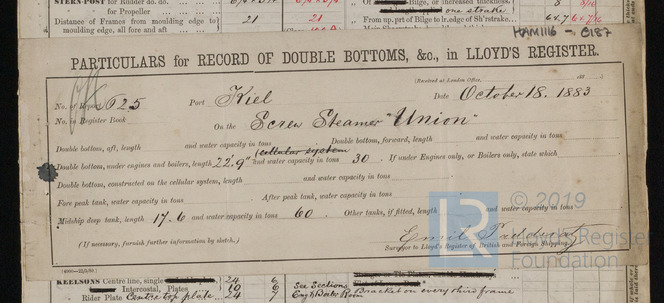 STERN-POST for Rudder do. do.
for Propeller
Distance of Frames from moulding edge to
moulding edge, all fore and aft
21 21
Bilge, increased thickness,
From up. prt of Bilge to lr. edge of Sh'rstrake
HAM116 - 0187
PARTICULARS for RECORD OF DOUBLE BOTTOMS, &c., in LLOYD'S REGISTER.
(Received at London Office, 188 )
No. of Report 625 Port Kiel Date October 18. 1883
No. in Register Book On the Screw Steamer "Union"
Double bottom, aft, length and water capacity in tons Double bottom, forward, length and water capacity in tons
(cellular system
Double bottom, under engines and boilers, length 22'.9" and water capacity in tons 30. If under Engines only, or Boilers only, state which
Double bottom, constructed on the cellular system, length and water capacity in tons
Fore peak tank, water capacity in tons After peak tank, water capacity in tons
Midship deep tank, length 17.6 and water capacity in tons 60. Other tanks, if fitted, length and water capacity in tons
(If necessary, furnish further information by sketch.)
Surveyor to Lloyd's Register of British and Foreign Shipping.
LR © 2019
Lloyds Register
Foundation
KEELSONS Centre line, single
Intercostal, Plates
Rider Plate Centre top plate
See Sections
Bracket on every third frame